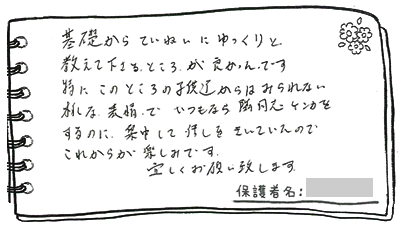 基礎からていねいにゆっくりと
教えて下さるところが良かったです
特にこのところの子供達からはみられない
様な表情で いつもなら隣同志ケンカを
するのに、集中して話しをきいていたので
これからが楽しみです。
宜しくお願い致します
保護者名: